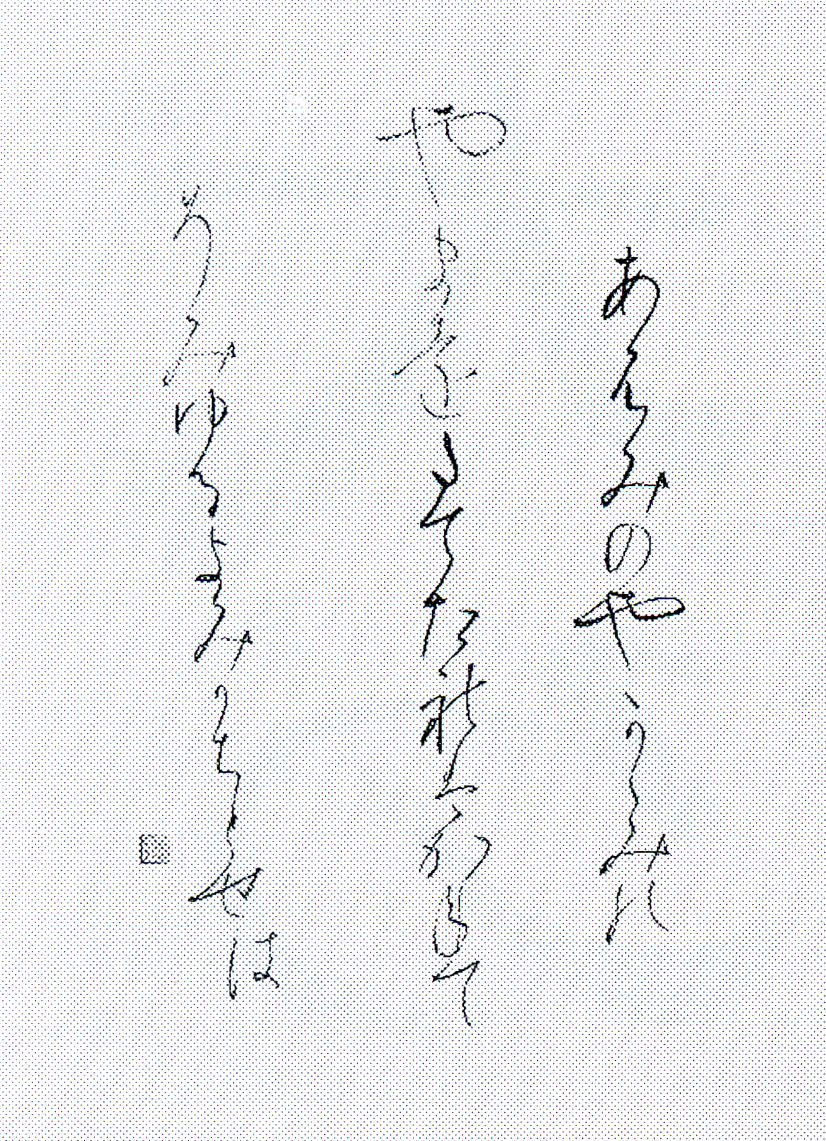 あふみのやかゝみの
やまをたてたれはかねて
そみゆるきみかちとせは